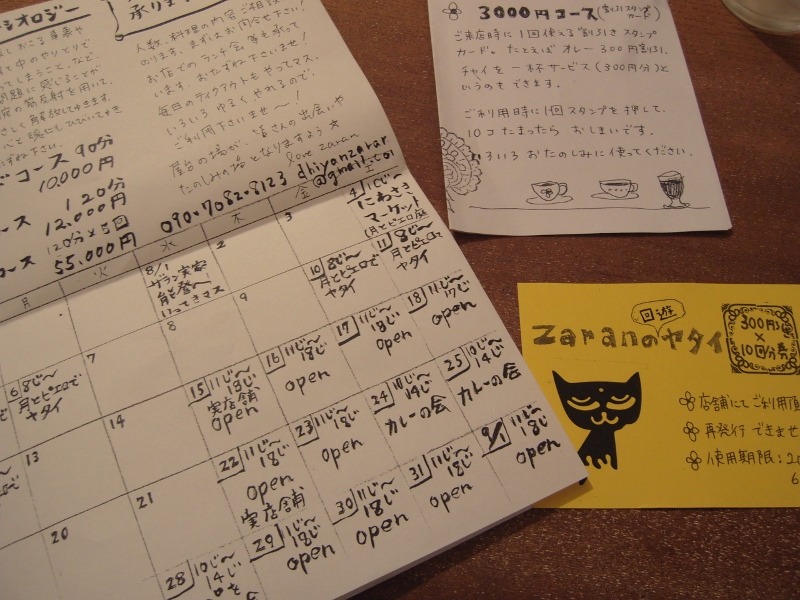 シオロジー
承りま
コース 90分
10,000円
コース 120分
12,000円
120分×5回
コース 55,000円
人数、料理の内容ご相談
のります。まずはお問合せ下さい!
お店でのランチ会等も承って
います。おたずね下さいませ!
毎日のテイクアウトもやってマス。
いろいろ ゆるく やれるので、
ご利用下さいませ〜!
屋台の場が、皆さんの出会いや
たのしみの場となりますよう☆
love zaran
090-7082-8123 dhiyanzaran
@gmail.com
月
火
水
木
金
土
8/1
ザラン実家
能登へ
いってきマス
2
3
4 10じ〜
にわさき
マーケット
(月とピエロ庭
6 8じ〜
月とピエロで
ヤタイ
7
8
9
10 8じ〜
月とピエロで
ヤタイ
11 8じ〜
月とピエロで
ヤタイ
13
14
15 11じ〜
18じ
実店舗
open
16 11じ〜
18じ
open
17 11じ〜
18じ
open
18 11じ〜
17じ
open
20
21
22 11じ〜
18じ
open
実店舗
23 11じ〜
18じ
open
24 10じ〜
14じ
カレーの会
25 10じ〜
14じ
カレーの会
28 10じ〜
14じ
29 11じ〜
18じ
open
30 11じ〜
18じ
open
31 11じ〜
18じ
open
9/1 11じ〜
18じ
open
3000円コース (割引スタンプカード)
ご来店時に1回使える割引きスタンプ
カード。たとえば オレー300円割引、
チャイを一杯サービス(300円分)と
いうのもできます。
ご利用時に1回スタンプを押して、
10コたまったら おしまいです。
いろいろ おたのしみに使ってください。
回遊
zaranのヤタイ
300円
×
10回分券
店舗にてご利用頂
再発行できませ
使用期限:20
6